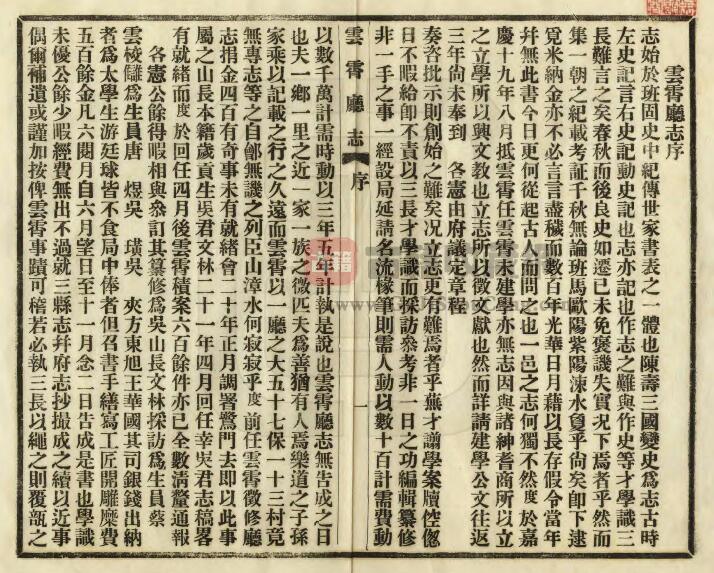 雲霄廳志序
志始於班固史中紀傳世家書表之一體也陳壽三國變史為志古時
左史記言右史記動史記也志亦記也作志之難與作史等才學識三
長難言之矣春秋而後良史如遷已未免褒譏失實况下焉者乎然而
集一朝之紀載考証千秋無論班馬歐陽紫陽涑水敻乎尚矣卽下逮
覓米納金亦不必言言盡穢而數百年光華日月藉以長存假令當年
幷無此書今日更何從起古人而問之也一邑之志何獨不然度於嘉
慶十九年八月抵雲霄任雲霄未建學亦無志因與諸紳耆商所以立
之立學所以興文教也立志所以徵文獻也然而詳請建學公文往返
三年尚未奉到　各憲由府議定章程
奏咨批示則創始之難矣况立志更有難焉者乎蕪才譾學案牘倥偬
日不暇給卽不責以三長才學識而採訪參考非一日之功編輯纂修
非一手之事一經設局延請名流椽筆則需人動以數十百計需費動
雲霄廳志　序　一
以數千萬計需時動以三年五年計執是說也雲霄廳志無告成之日
也夫一鄉一里之近一家一族之微匹夫為善猶有人焉樂道之子孫
家乘以記載之行之久遠而雲霄以一廳之大五十七保一十三村竟
無專志等之自鄶無譏之列臣山漳水何寂寂乎度前任雲霄徵修廳
志捐金四百有奇事未有就緒會二十年正月調署鷺門去卽以此事
屬之山長本籍歲貢生吳君文林二十一年四月回任幸吳君志稿畧
有就緒而度於回任四月後雲霄積案六百餘件亦已全數清釐通報
各憲公餘得暇相與叅訂其纂修為吳山長文林採訪為生員蔡
雲梭讎為生員唐　煜吳　璜吳　夾方東旭王華國其司銀錢出納
者為太學生游廷球皆不食局中俸者但召書手繕寫工匠開雕糜費
五百餘金凡六閱月自六月望日至十一月念二日告成是書也學識
未優公餘少暇經費無出不過就三縣志幷府志抄撮成之續以近事
偶爾補遺或謹加按俾雲霄事蹟可稽若必執三長以繩之則覆瓿之